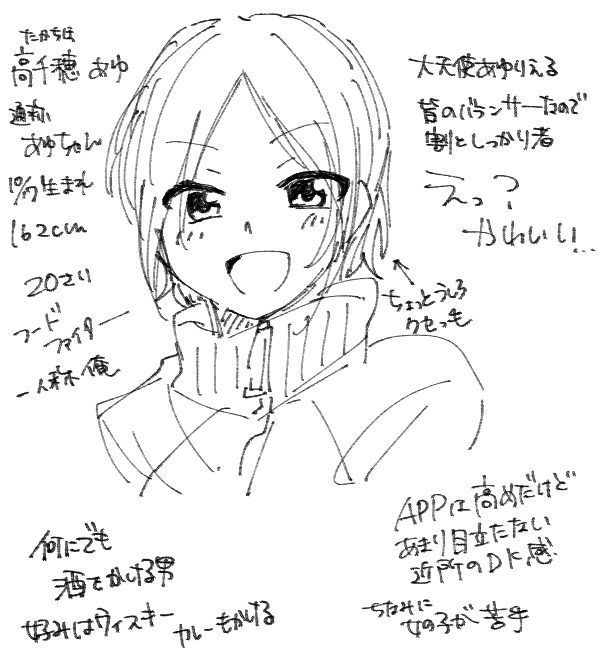 たかちほ
高千穂 あゆ
通称
あゆちゃん
10/7生まれ
162cm
20さい
フード
ファイター
一人称 俺
大天使あゆりえる
皆のバランサーなので
割としっかり者
えっ?
かわいい…
ちょっとうしろ
クセっ毛
何にでも
酒をかける男
好みはウィスキー
カレーもかける
APPは高めだけど
あまり目立たない
近所のDK感
ちなみに
女の子が苦手